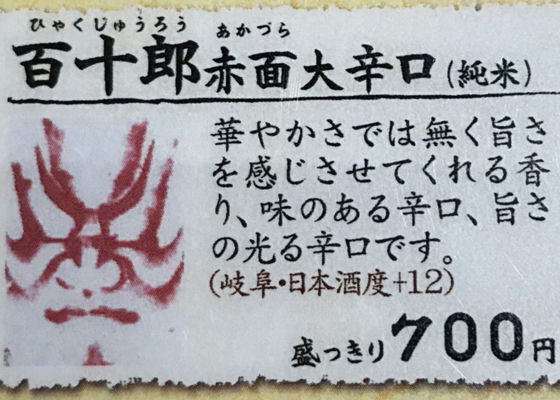 ひゃくじゅうろう あかづら
百十郎 赤面大辛口(純米)
華やかさでは無く旨さ
を感じさせてくれる香
り、味のある辛口、旨さ
の光る辛口です。
(岐阜・日本酒度+12)
盛っきり700円